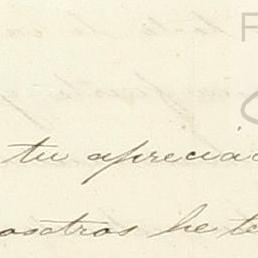 tu apreciac
osotros he te